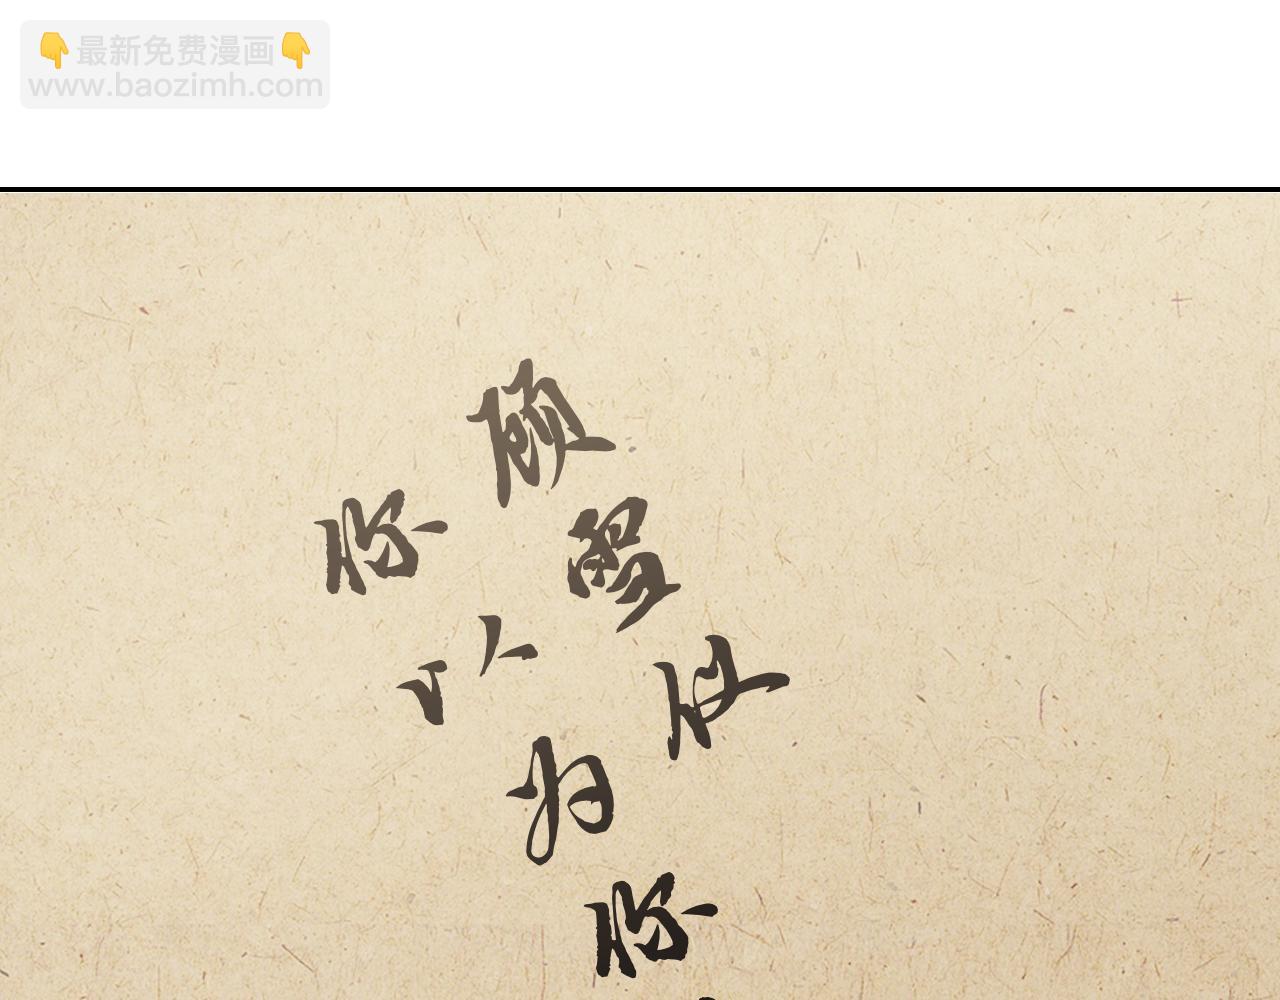 最新免费漫画
www.baozimh.com
顾雪仪
你以为你